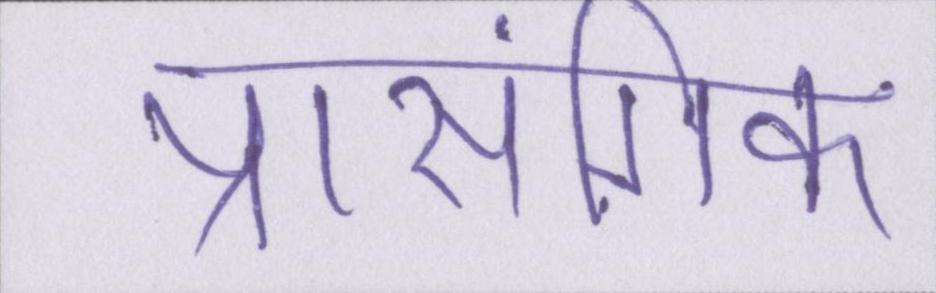 प्रासंगिक